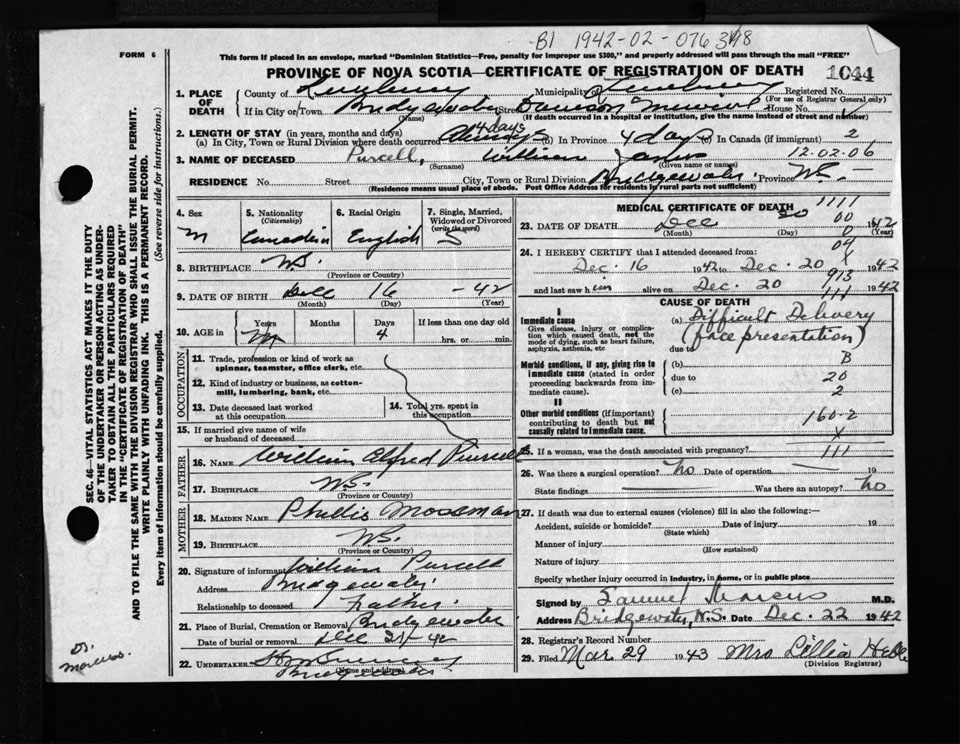 B1 1942-02-076348
FORM 6
This form if placed in an envelope, marked "Dominion Statistics—Free, penalty for improper use $300," and properly addressed will pass through the mail "FREE"
PROVINCE OF NOVA SCOTIA—CERTIFICATE OF REGISTRATION OF DEATH 1044
1. PLACE OF DEATH County of Lunenburg Municipality of Lunenburg Registered No.
(For use of Registrar General only)
If in City or Town Bridgewater Street Dawson Memorial House No.
(Name) (If death occurred in a hospital or institution, give the name instead of street and number)
2. LENGTH OF STAY (in years, months and days)
(a) In City, Town or Rural Division where death occurred 4 days (b) In Province 4 days (c) In Canada (if immigrant) 2
3. NAME OF DECEASED Purcell, William James 12.02.06
(Surname) (Given name or names)
RESIDENCE No. Street City, Town or Rural Division Bridgewater Province N.S.
(Residence means usual place of abode. Post Office Address for residents in rural parts not sufficient)
4. Sex M
5. Nationality (Citizenship) Canadian
6. Racial Origin English
7. Single, Married, Widowed or Divorced (write the word) S
8. BIRTHPLACE N.S.
(Province or Country)
9. DATE OF BIRTH Dec 16 - 42
(Month) (Day) (Year)
10. AGE in Years Months Days 4 If less than one day old
hrs. or min.
OCCUPATION
11. Trade, profession or kind of work as spinner, teamster, office clerk, etc.
12. Kind of industry or business, as cotton-mill, lumbering, bank, etc.
13. Date deceased last worked at this occupation
14. Total yrs. spent in this occupation
15. If married give name of wife or husband of deceased
FATHER
16. Name William Alfred Purcell
17. Birthplace N.S.
(Province or Country)
MOTHER
18. Maiden Name Phyllis Mossman
19. Birthplace N.S.
(Province or Country)
20. Signature of informant William Purcell
Address Bridgewater
Relationship to deceased Father
21. Place of Burial, Cremation or Removal Bridgewater
Date of burial or removal Dec 21/42
22. UNDERTAKER
(Name and address)
Bridgewater
MEDICAL CERTIFICATE OF DEATH 1111
23. DATE OF DEATH Dec 20 1942
00
0
(Month) (Day) (Year)
24. I HEREBY CERTIFY that I attended deceased from: 04
X
Dec. 16 1942 to Dec. 20 1942
913
and last saw him alive on Dec. 20 1942
111
CAUSE OF DEATH
I
Immediate cause
Give disease, injury or complication which caused death, not the mode of dying, such as heart failure, asphyxia, asthenia, etc
(a) Difficult Delivery
(face presentation)
due to
Morbid conditions, if any, giving rise to immediate cause (stated in order proceeding backwards from immediate cause).
(b) B
due to 20
(c) 2
II
Other morbid conditions (if important) contributing to death but not causally related to immediate cause.
160-2
X
25. If a woman, was the death associated with pregnancy? 111
26. Was there a surgical operation? No Date of operation 19
State findings Was there an autopsy? No
27. If death was due to external causes (violence) fill in also the following:—
Accident, suicide or homicide? Date of injury 19
(State which)
Manner of injury
(How sustained)
Nature of injury
Specify whether injury occurred in industry, in home, or in public place
Signed by Samuel Marcus M.D.
Address Bridgewater, N.S. Date Dec. 22 1942
28. Registrar's Record Number
29. Filed Mar 29 1943 Mrs Lillia
(Division Registrar)
SEC. 46—VITAL STATISTICS ACT MAKES IT THE DUTY
OF THE UNDERTAKER OR PERSON ACTING AS UNDER-
TAKER TO OBTAIN ALL THE PARTICULARS REQUIRED
IN THE "CERTIFICATE OF REGISTRATION OF DEATH"
AND TO FILE THE SAME WITH THE DIVISION REGISTRAR WHO SHALL ISSUE THE BURIAL PERMIT.
WRITE PLAINLY WITH UNFADING INK. THIS IS A PERMANENT RECORD.
Every item of information should be carefully supplied. (See reverse side for instructions.)
Dr.
Marcus.